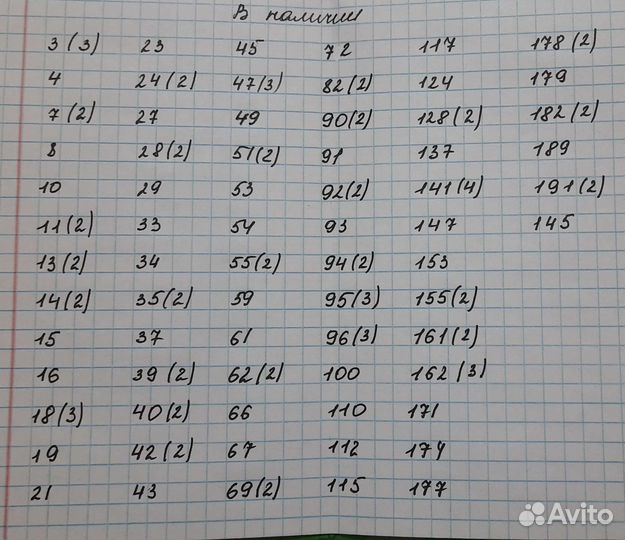 В наличии
3 (3) 23 45 72 117 178 (2)
4 24 (2) 47 (3) 82 (2) 124 179
7 (2) 27 49 90 (2) 128 (2) 182 (2)
8 28 (2) 51 (2) 91 137 189
10 29 53 92 (2) 141 (4) 191 (2)
11 (2) 33 54 93 147 145
13 (2) 34 55 (2) 94 (2) 153
14 (2) 35 (2) 59 95 (3) 155 (2)
15 37 61 96 (3) 161 (2)
16 39 (2) 62 (2) 100 162 (3)
18 (3) 40 (2) 66 110 171
19 42 (2) 67 112 174
21 43 69 (2) 115 177
Avito